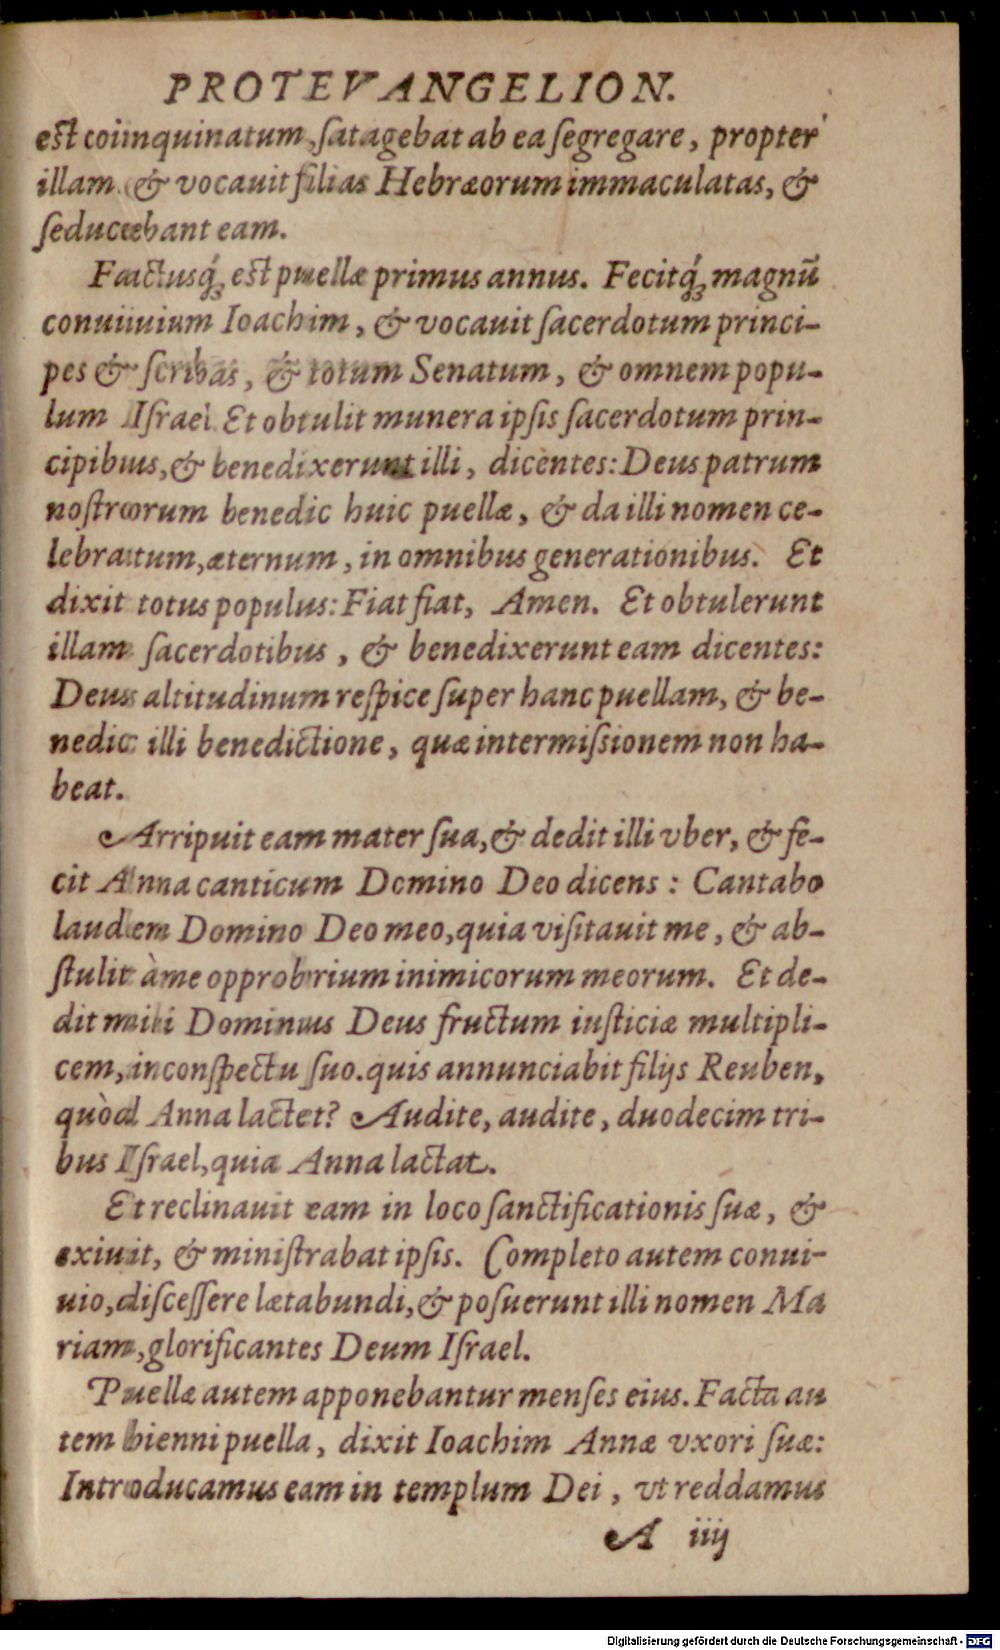 PROTEVANGELION.
est coinquinatum, ſatagebat ab ea ſegregare, propter
illam. & vocauit filias Hebræorum immaculatas, &
ſeducebant eam.
Factusq́; est puellæ primus annus. Fecitq́; magnū
conuiuium Ioachim, & vocauit ſacerdotum princi-
pes & ſcribas, & totum Senatum, & omnem popu-
lum Iſrael. Et obtulit munera ipſis ſacerdotum prin-
cipibus, & benedixerunt illi, dicentes: Deus patrum
noſtrorum benedic huic puellæ, & da illi nomen ce-
lebratum, æternum, in omnibus generationibus. Et
dixit totus populus: Fiat fiat, Amen. Et obtulerunt
illam ſacerdotibus, & benedixerunt eam dicentes:
Deus altitudinum reſpice ſuper hanc puellam, & be-
nedic illi benedictione, quæ intermiſsionem non ha-
beat.
Arripuit eam mater ſua, & dedit illi vber, & fe-
cit Anna canticum Domino Deo dicens: Cantabo
laudem Domino Deo meo, quia viſitauit me, & ab-
ſtulit à me opprobrium inimicorum meorum. Et de-
dit mihi Dominus Deus fructum iuſticiæ multipli-
cem, in conſpectu ſuo. quis annunciabit filijs Reuben,
quòd Anna lactet? Audite, audite, duodecim tri-
bus Iſrael, quia Anna lactat.
Et reclinauit eam in loco ſanctificationis ſuæ, &
exiuit, & miniſtrabat ipſis. Completo autem conui-
uio, diſceſſere lætabundi, & poſuerunt illi nomen Ma
riam, glorificantes Deum Iſrael.
Puellæ autem apponebantur menſes eius. Facta au
tem biennipuella, dixit Ioachim Annæ vxori ſuæ:
Introducamus eam in templum Dei, vt reddamus
A iiij
Digitalisierung gefördert durch die Deutsche Forschungsgemeinschaft - DFG